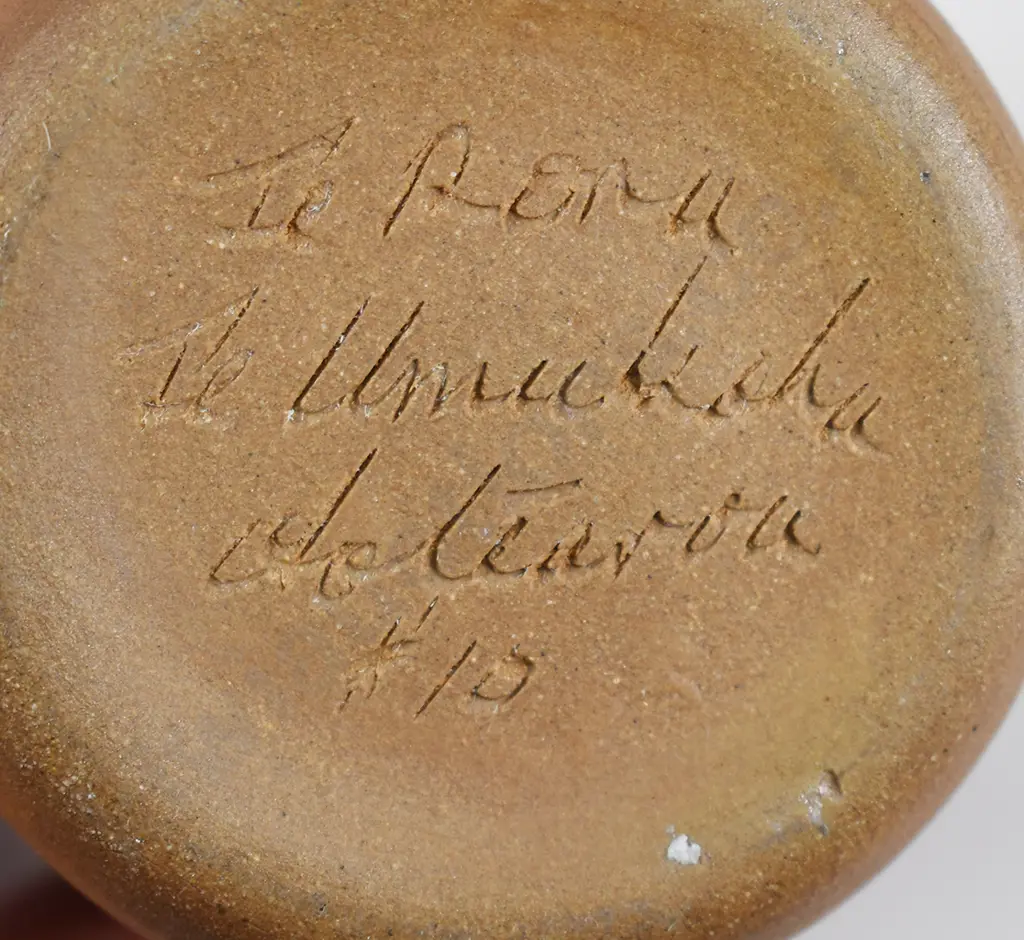 Te Rona
Te Umukaha
Aotearoa
#10